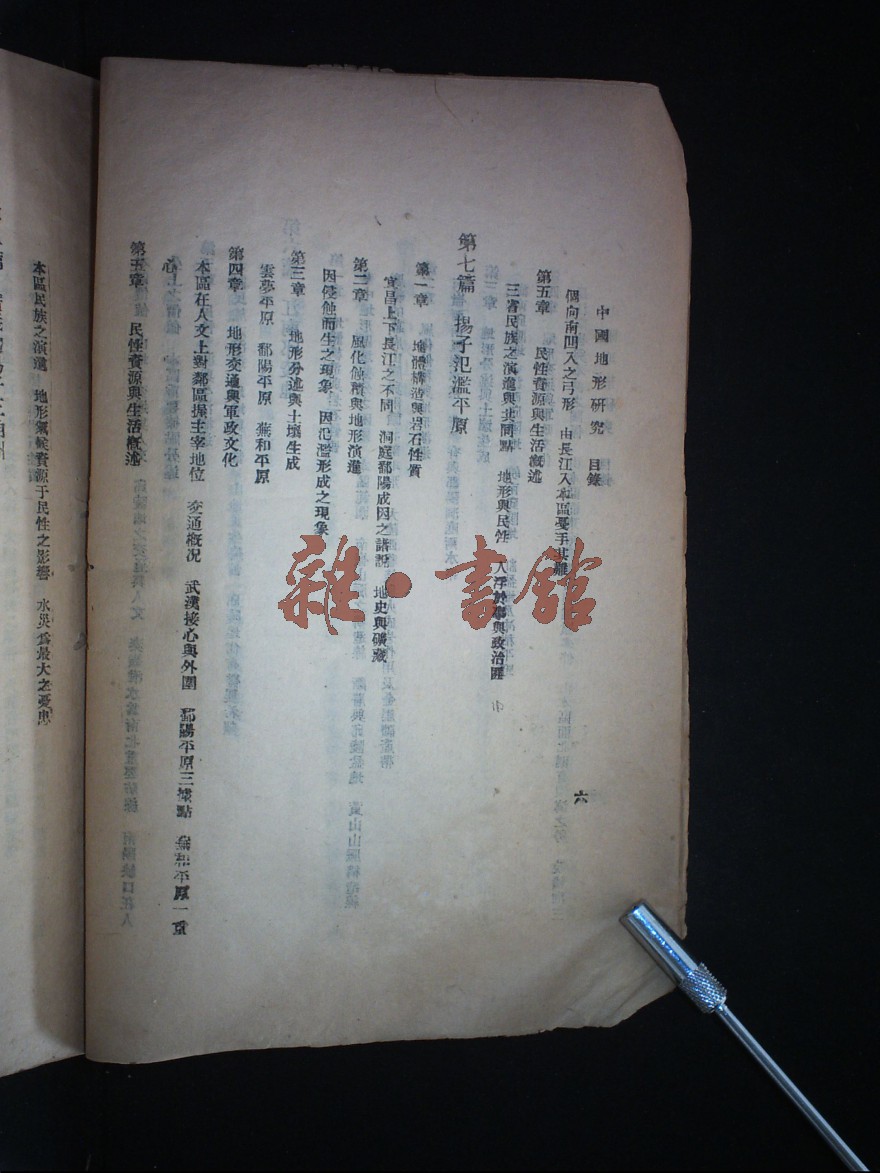 中國地形研究 目錄
六
個向南凹入之弓形 由長江入本區
第五章 民性資源與生活概述
三省民族之演進與共同點 地形與民性 人浮於事與政治匪
第七篇 揚子氾濫平原
第一章 地體構造與岩石性質
宜昌上下長江之不同 洞庭鄱陽成因之諸說 地史與礦藏
第二章 風化蝕積與地形演進
因侵蝕而生之現象 因氾濫形成之現象
第三章 地形分述與土壤生成
雲夢平原 鄱陽平原 蕪和平原
第四章 地形交通與軍政文化
本區在人文上對鄰區操主宰地位 交通概况 武漢接心與外圍 鄱陽平原三據點 蕪和平原一重
心
第五章 民性資源與生活概述
本區民族之演進 地形氣候資源于民性之影響 水災為最大之憂患
雜·書館